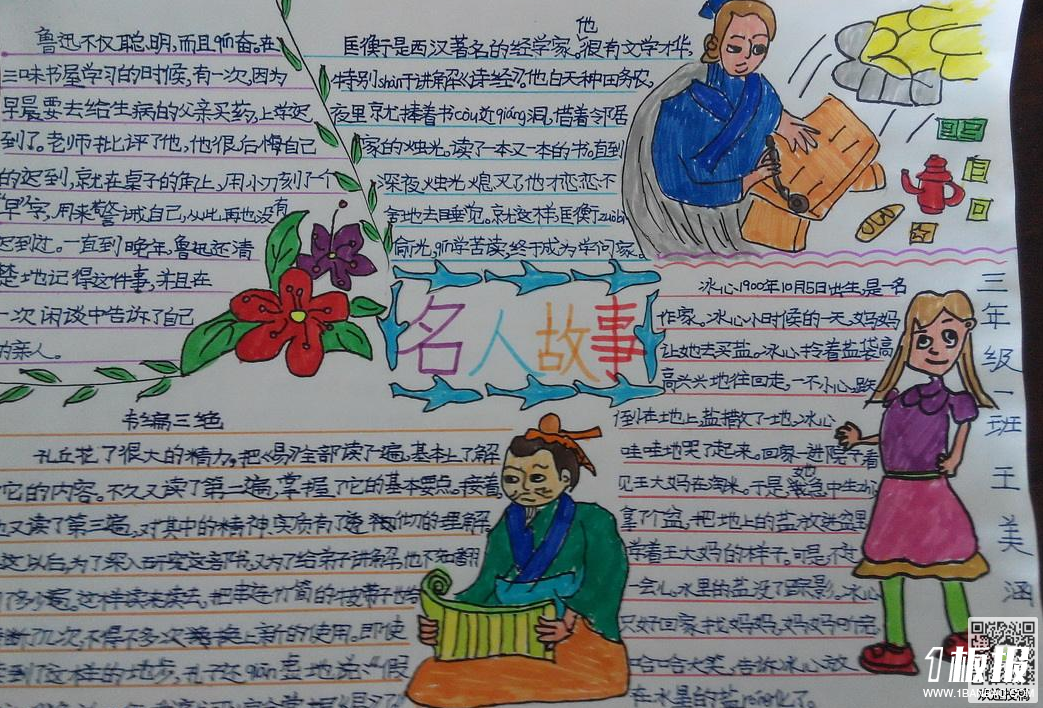 鲁迅不仅聪明,而且勤奋。在
三味书屋学习的时候,有一次,因为
早晨要去给生病的父亲买药,上学迟
到了。老师批评了他,他很后悔自己
的迟到,就在桌子的角上,用小刀刻了个
"早"字,用来警诫自己,从此再也没有
迟到过。一直到晚年,鲁迅还清
楚地记得这件事,并且在
一次闲谈中告诉了自己
的亲人。
匡衡于是西汉著名的经学家。他很有文学才华,
特别shàn于讲解《诗经》。他白天种田务农,
夜里就捧着书còu近qiáng洞,借着邻居
家的烛光。读了一本又一本的书。直到
深夜烛光熄灭了他才恋恋不
舍地去睡觉。就这样匡衡záobì
偷光,勤学苦读,终于成为学问家。
名人故事
冰心1900年10月5日出生,是一名
作家。冰心小时候的一天,妈妈
让她去买盐。冰心拎着盐袋高
高兴兴地往回走,一不小心,跌
倒在地上,盐撒了一地,冰心
哇哇地哭了起来。回家一进院子看
见王大妈在淘米。于是,她急中生zhì
拿了个盆,把地上的盐放进盆里
学着王大妈的样子。可是不过
一会儿,水里的盐没了踪影。冰心
只好回家找妈妈,妈妈听完
哈哈大笑,告诉冰心放
在水里的盐róng化了。
三年级一班王美涵
韦编三绝
孔丘花了很大的精力,把《易》全部读了遍,基本上了解
了它的内容。不久又读了第二遍,掌握了它的基本要点。接着
他又读了第三遍,对其中的精神、实质有了透彻的理解
这以后,为了深入研究这部书,又为了给弟子讲解,他不知翻
了多少遍。这样读来读去,把串连竹简的皮带子也给
断了几次,不得不多次换上新的使用。即使
到了这样的地步,孔子还qiān虚地说:"假
1板报
WWW.1BANBAO.COM
欢迎投稿